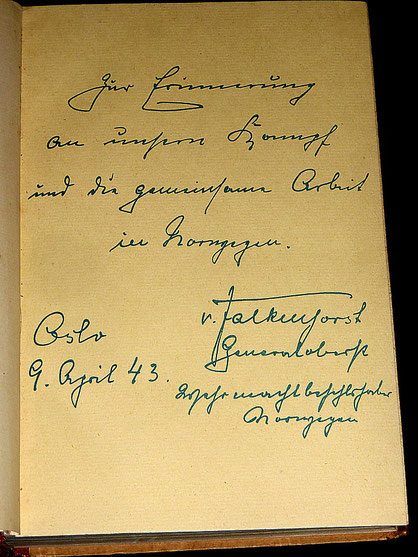 Zur Erinnerung
an unsern Kampf
und die gemeinsame Arbeit
in Norwegen.
v. Falkenhorst
Generaloberst
Wehrmachtbefehlshaber
Norwegen
Oslo
9. April 43.